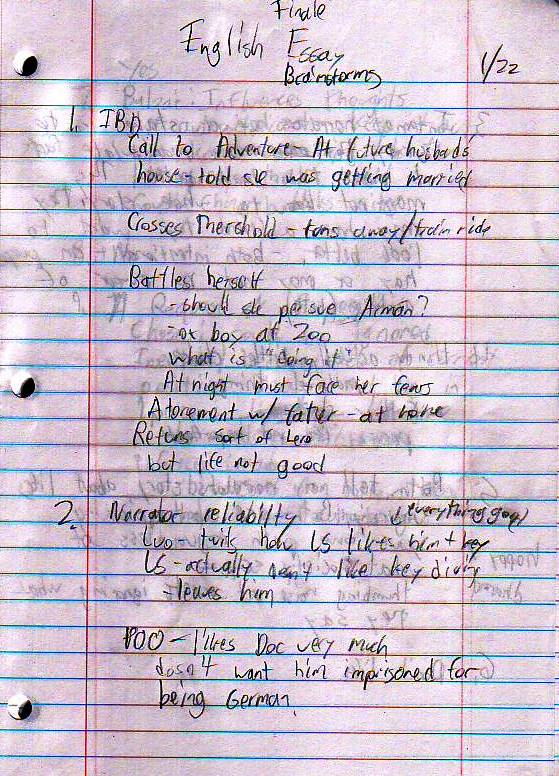 Finale
English Essay
Brainstorms
1/22
1. IBD
Call to Adventure - At future husbads
house - told she was getting married
Crosses Thershold - runs away/train ride
Battles herself
- should she persue Arman?
- or boy at Zoo
what is "doing it"
At night must face her fears
Atonement w/ father - at home
Returns sort of hero
but life not good
2. Narrator reliabilty
(everything good)
Luo - how LS likes him + key
LS - actually doesn't like key diving
- leaves him
POO - likes Doc very much
dosn't want him imprisoned for
being German